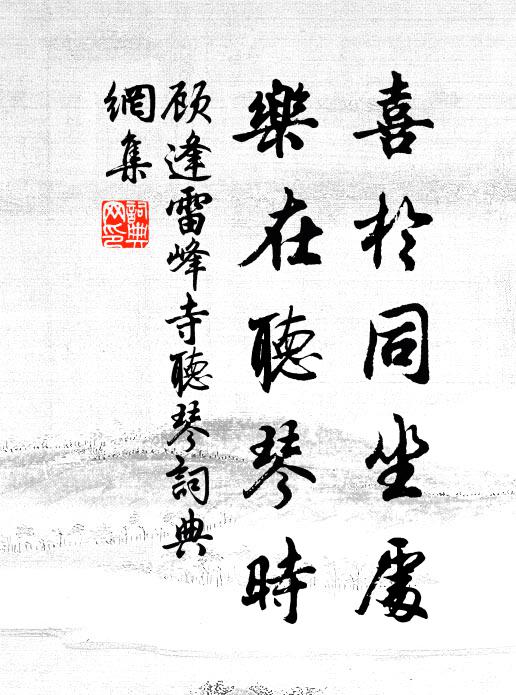 喜於同坐處
樂在聽琴時
顧逢雷峰寺聽琴詞典
網集
詞典
网印